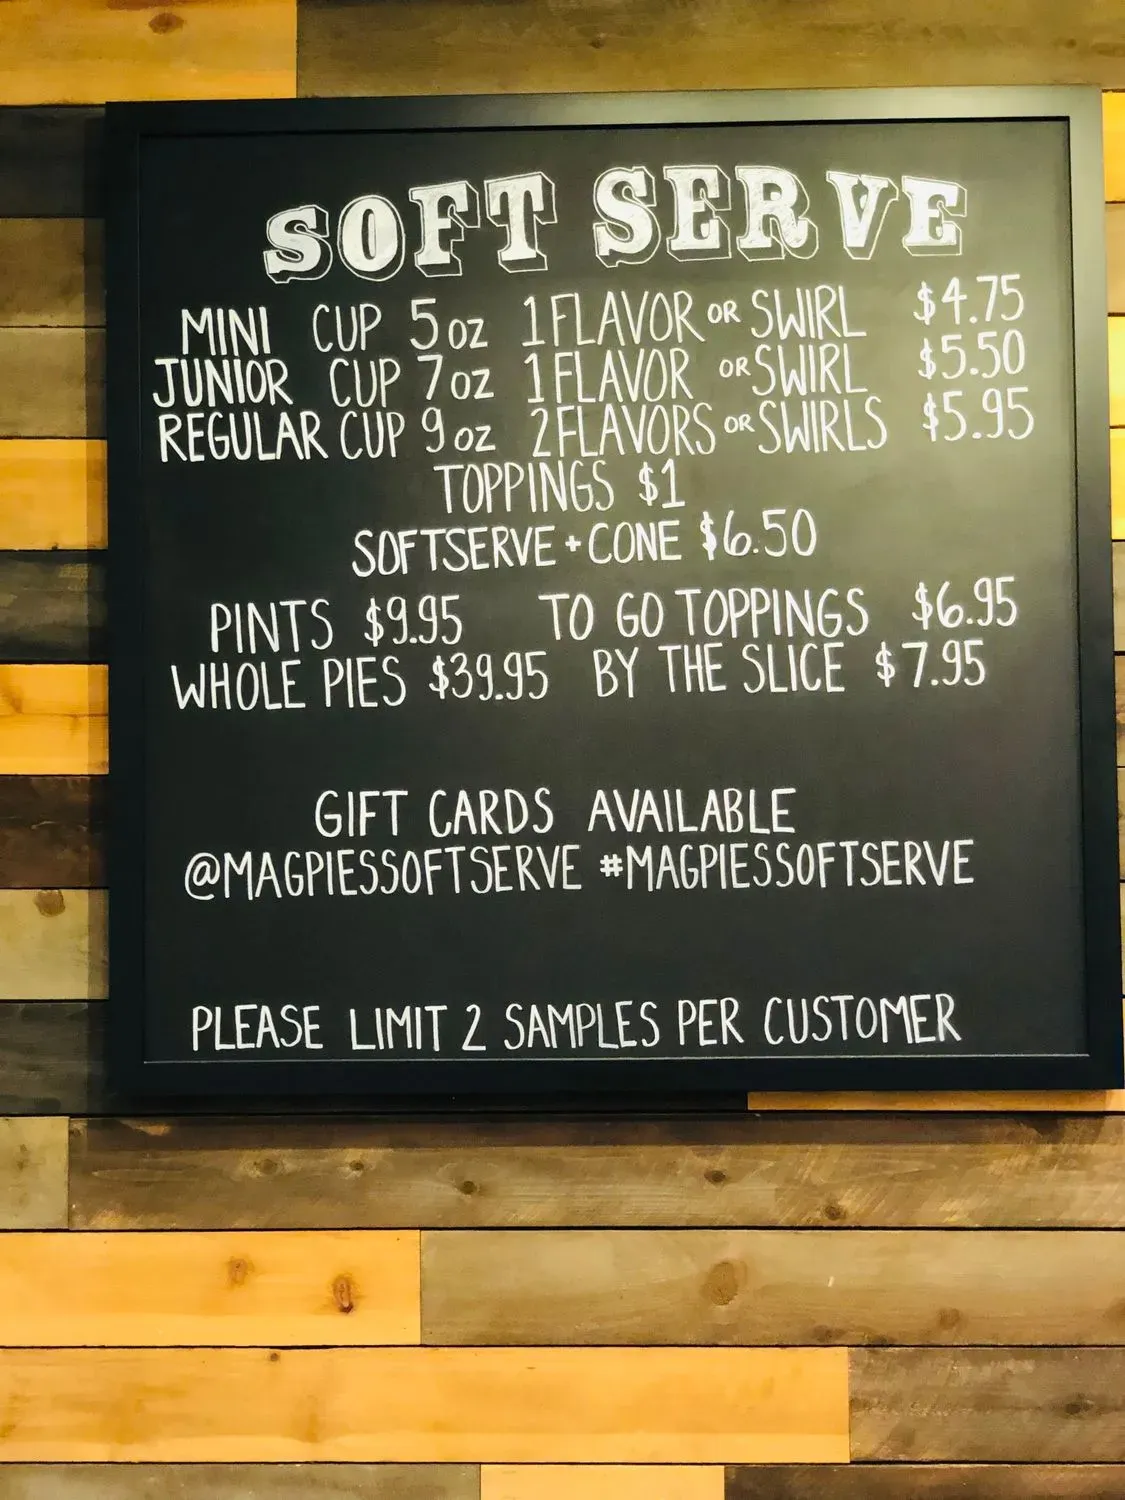 SOFT SERVE
MINI CUP 5 oz 1 FLAVOR OR SWIRL $4.75
JUNIOR CUP 7 oz 1 FLAVOR OR SWIRL $5.50
REGULAR CUP 9 oz 2 FLAVORS OR SWIRLS $5.95
TOPPINGS $1
SOFTSERVE + CONE $6.50
PINTS $9.95 TO GO TOPPINGS $6.95
WHOLE PIES $39.95 BY THE SLICE $7.95
GIFT CARDS AVAILABLE
@MAGPIESSOFTSERVE #MAGPIESSOFTSERVE
PLEASE LIMIT 2 SAMPLES PER CUSTOMER